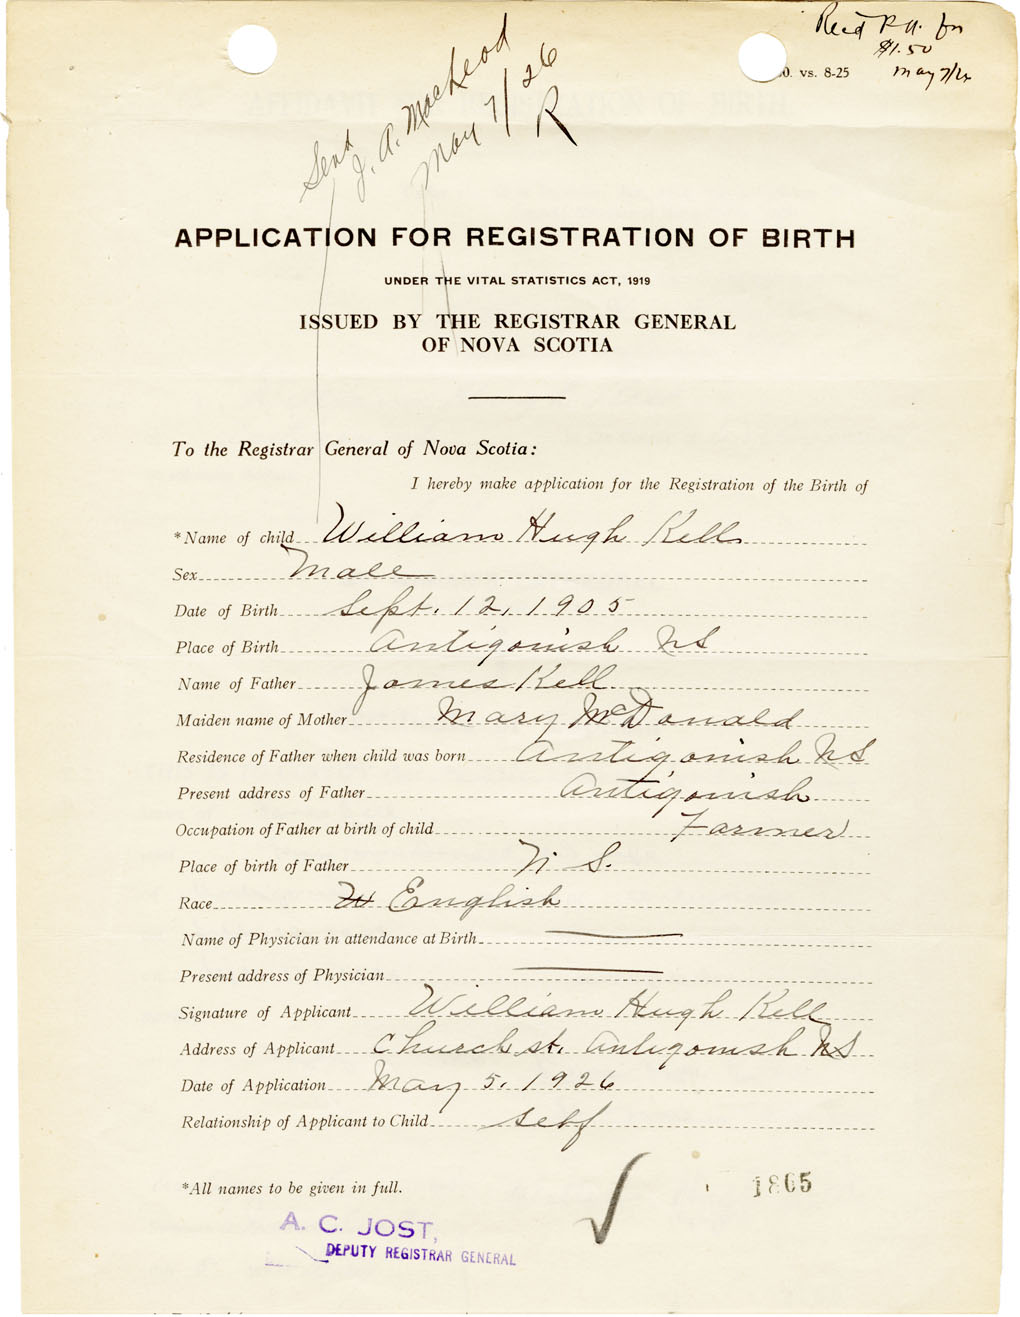 Recd P.N. for
$1.50
May 7/26
0. vs. 8-25
Send
J. A. MacLeod
May 7/26
R
APPLICATION FOR REGISTRATION OF BIRTH
UNDER THE VITAL STATISTICS ACT, 1919
ISSUED BY THE REGISTRAR GENERAL
OF NOVA SCOTIA
To the Registrar General of Nova Scotia:
I hereby make application for the Registration of the Birth of
*Name of child William Hugh Kell
Sex Male
Date of Birth Sept. 12, 1905
Place of Birth Antigonish NS
Name of Father James Kell
Maiden name of Mother Mary McDonald
Residence of Father when child was born Antigonish NS
Present address of Father Antigonish
Occupation of Father at birth of child Farmer
Place of birth of Father N S.
Race English
Name of Physician in attendance at Birth
Present address of Physician
Signature of Applicant William Hugh Kell
Address of Applicant Church st. Antigonish NS
Date of Application May 5, 1926
Relationship of Applicant to Child self
*All names to be given in full.
1865
A. C. JOST,
DEPUTY REGISTRAR GENERAL